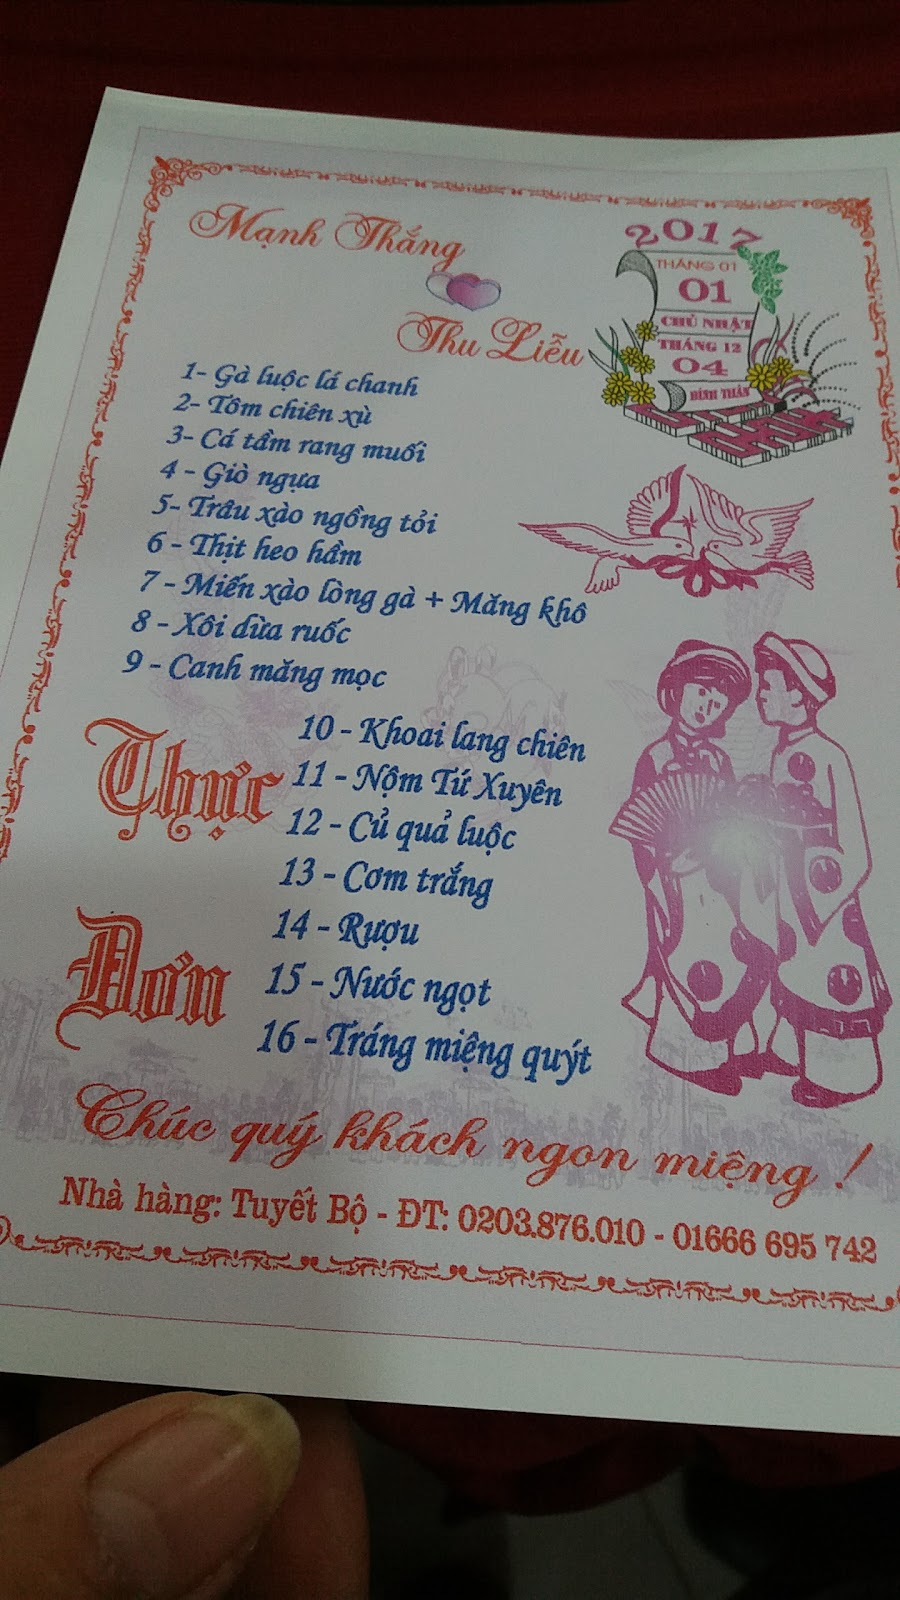 Mạnh Thắng
Thu Liễu
2017
THÁNG 01
01
CHỦ NHẬT
THÁNG 12
04
BÍNH THÂN
1- Gà luộc lá chanh
2- Tôm chiên xù
3- Cá tầm rang muối
4 - Giò ngựa
5- Trâu xào ngồng tỏi
6 - Thịt heo hầm
7 - Miến xào lòng gà + Măng khô
8 - Xôi dừa ruốc
9 - Canh măng mọc
Thực
Đơn
10 - Khoai lang chiên
11 - Nộm Tứ Xuyên
12 - Củ quả luộc
13 - Cơm trắng
14 - Rượu
15 - Nước ngọt
16 - Tráng miệng quýt
Chúc quý khách ngon miệng !
Nhà hàng: Tuyết Bộ - ĐT: 0203.876.010 - 01666 695 742